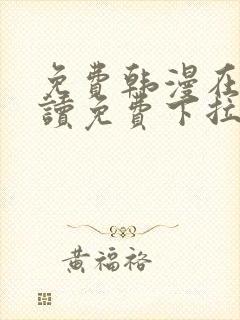 免費韩漫在
讀免費下拉
黃福袼